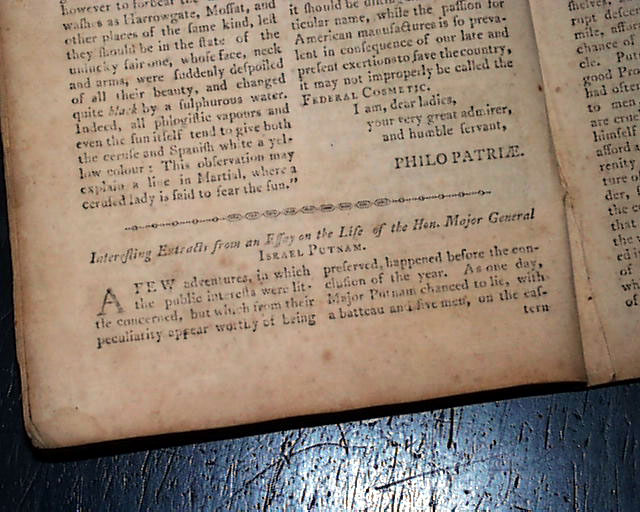 however to forbear the
washes as Harrowgate, Moffat, and
other places of the same kind, lest
they should be in the state of the
unlucky fair one, whose face, neck
and arms, were suddenly despoiled
of all their beauty, and changed
quite black by a sulphurous water.
Indeed, all phlogistic vapours and
even the sun itself tend to give both
the ceruse and Spanish white a yel-
low colour: This observation may
explain a line in Martial, where a
cerused lady is said to fear the sun."
it should be
ticular name, while the passion for
American manufactures is so preva-
lent in consequence of our late and
present exertions to save the country,
it may not improperly be called the
FEDERAL COSMETIC.
I am, dear ladies,
your very great admirer,
and humble servant,
PHILO PATRIÆ.
Interesting Extracts from an Essay on the Life of the Hon. Major General
ISRAEL PUTNAM.
A FEW adventures, in which
the public interests were lit-
tle concerned, but which from their
peculiarity appear worthy of being
preserved, happened before the con-
clusion of the year. As one day,
Major Putnam chanced to lie, with
a batteau and five men, on the eas-
tern
shelves,
rupt descen
mile, affor
chance of
cle. Put
good Pro
had often
to men
are cruel
himself
afford a
renity
ture of
der,
the co
that
the w
ed i
of
wh
of